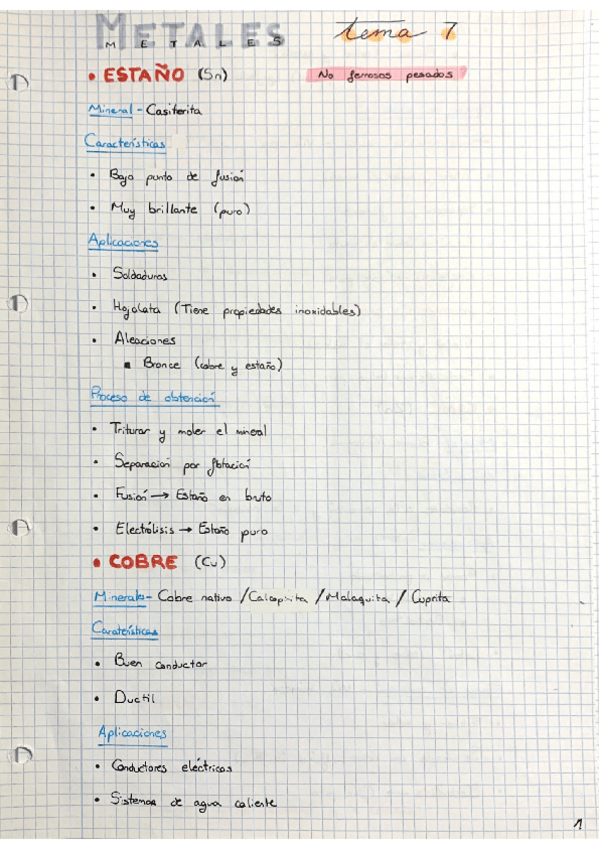 METALES tema 7
METALES
• ESTAÑO (Sn) No ferrosos pesados
Mineral - Casiterita
Características
• Bajo punto de fusión
• Muy brillante (puro)
Aplicaciones
• Soldaduras
• Hojalata (Tiene propiedades inoxidables)
• Aleaciones
▪ Bronce (cobre y estaño)
Proceso de obtención
• Triturar y moler el mineral
• Separación por flotación
• Fusión → Estaño en bruto
• Electrólisis → Estaño puro
• COBRE (Cu)
Minerales - Cobre nativo / Calcopirita / Malaquita / Cuprita
Caraterísticas
• Buen conductor
• Ductil
Aplicaciones
• Conductores eléctricos
• Sistemas de agua caliente
1